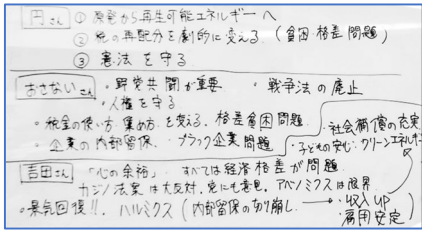 円さん ① 原発から再生可能エネルギーへ
② 税の再配分を劇的に変える（貧困格差問題）
③ 憲法を守る
おさないさん ・野党共闘が重要 ・戦争法の廃止
・人権を守る
・税金の使い方、集め方を変える、格差貧困問題
・企業の内部留保、ブラック企業問題
・社会補償の充実
・子どもの安心、クリーンエネルギー
吉田さん 「心の余裕」 すべては経済格差が問題
カジノ法案は大反対、党にも意見。アベノミクスは限界
・景気回復!!。ハルミクス（内部留保の切り崩し → 収入UP
雇用安定）